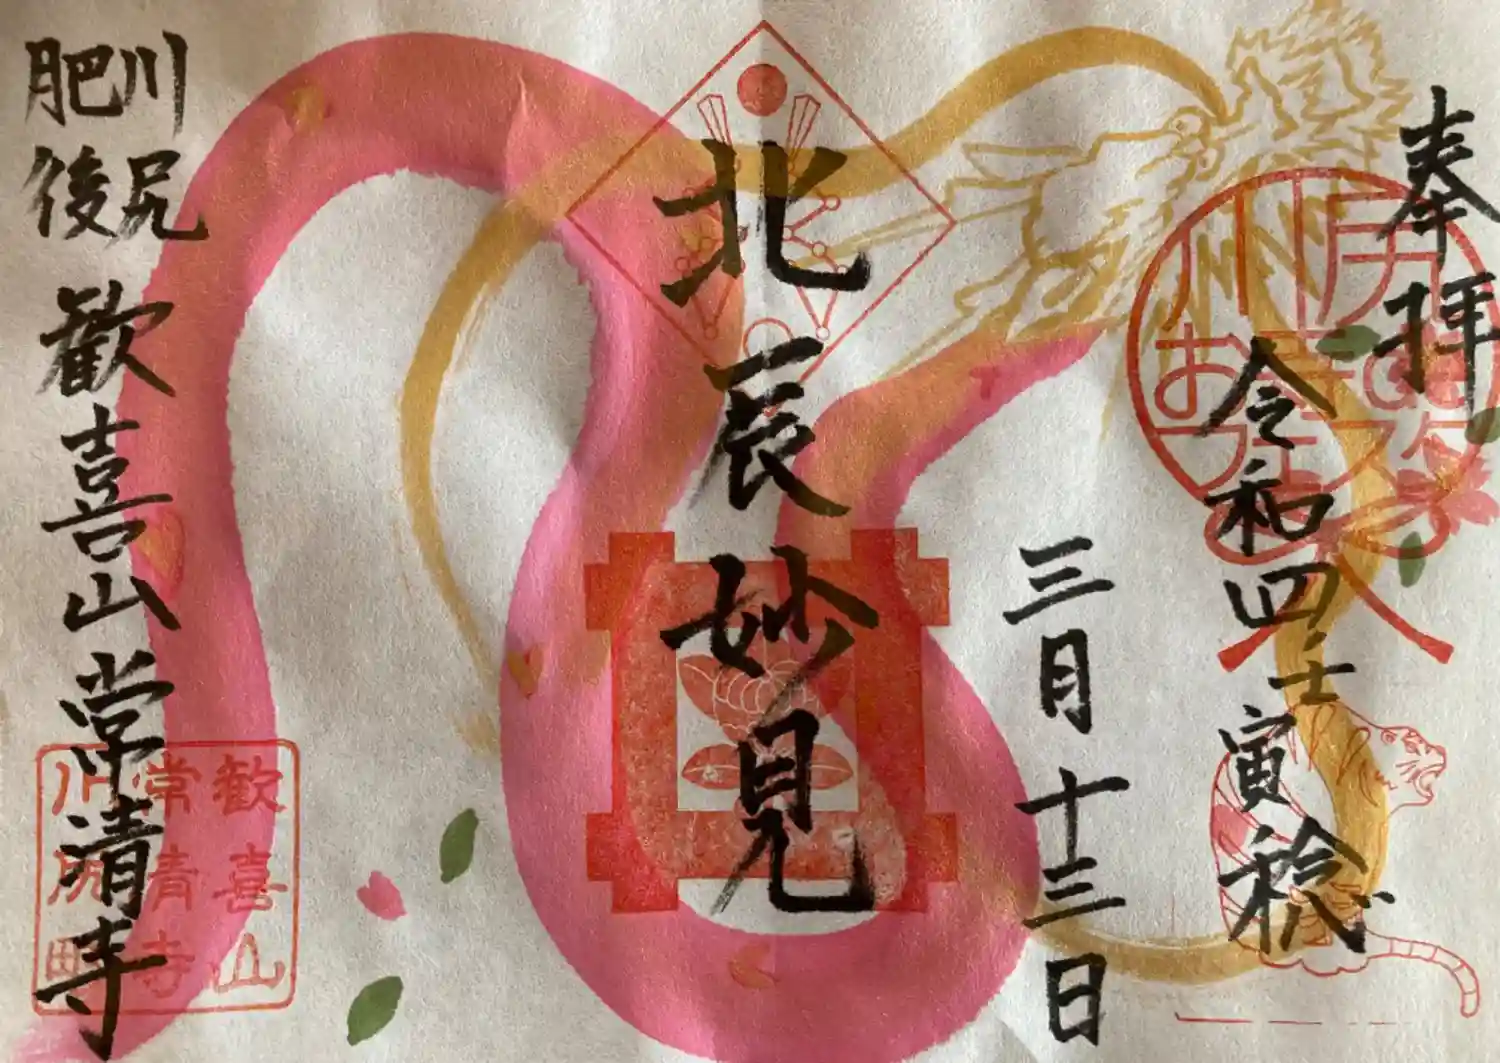 奉拝
令和四壬寅稔
三月十三日
北辰妙見
川尻
肥後
歓喜山常清寺
歓喜山
常清寺